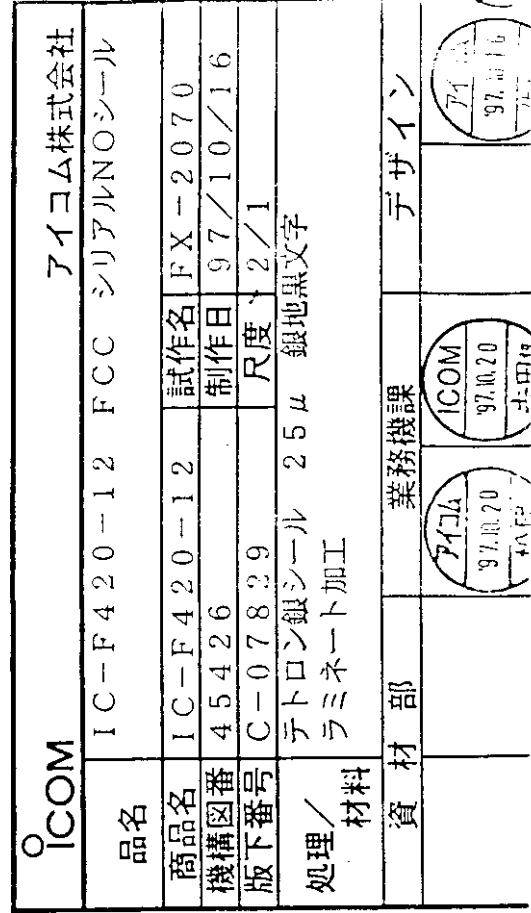 ICOM アイコム株式会社
品名 IC-F420-12 FCC シリアルNOシール
商品名 IC-F420-12 試作名 FX-2070
機構図番 45426 制作日 97/10/16
版下番号 C-07829 尺度 2/1
処理/材料 テトロン銀シール 25μ 銀地黒文字
ラミネート加工
資材部 業務機課 デザイン
アイコム ICOM アイコム
'97.10.20 '97.10.20 '97.10.16